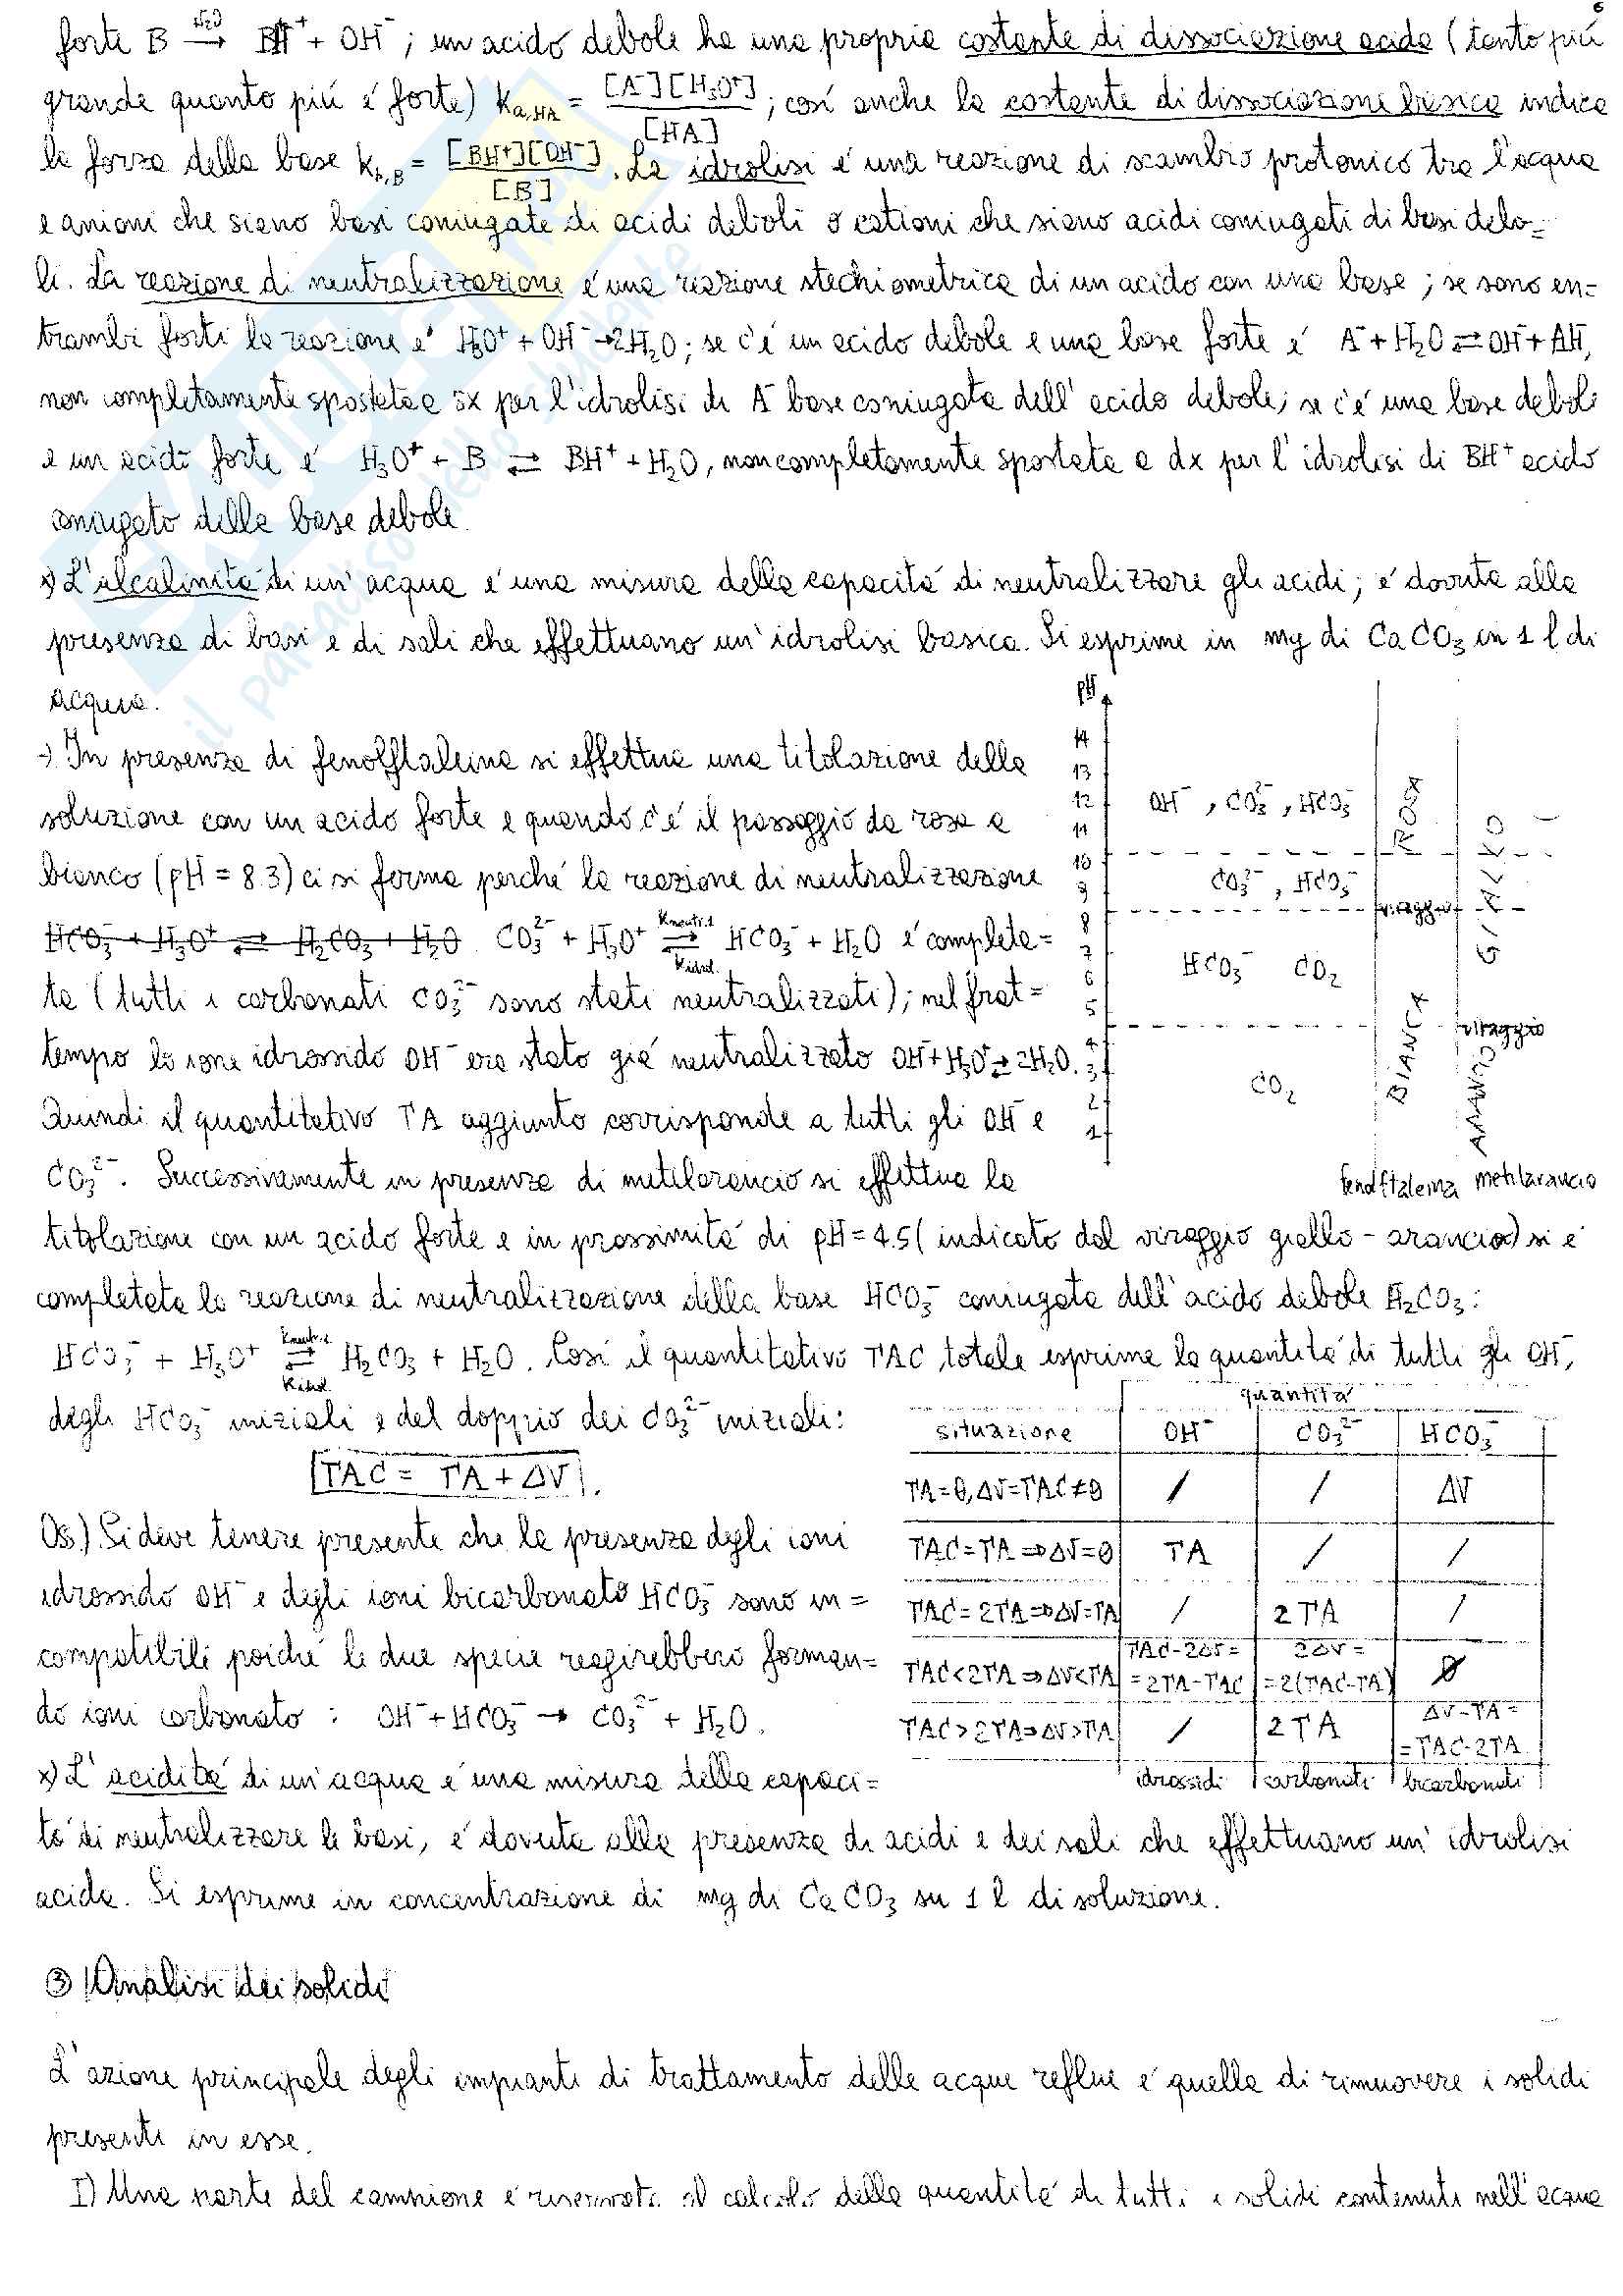 6
forte B →(H₂O) BH⁺ + OH⁻; un acido debole ha una propria costante di dissociazione acida (tanto più
grande quanto più é forte) Ka,HA = [A⁻][H₃O⁺] / [HA]; cosí anche la costante di dissociazione basica indica
la forza della base Kb,B = [BH⁺][OH⁻] / [B]. La idrolisi é una reazione di scambio protonico tra l'acqua
e anioni che siano basi coniugate di acidi deboli o cationi che siano acidi coniugati di basi debo=
li. La reazione di neutralizzazione é una reazione stechiometrica di un acido con una base; se sono en=
trambi forti la reazione é H₃O⁺ + OH⁻ → 2H₂O; se c'é un acido debole e una base forte é A⁻ + H₂O ⇄ OH⁻ + AH,
non completamente spostata a sx per l'idrolisi di A⁻ base coniugata dell'acido debole; se c'é una base debole
e un acido forte é H₃O⁺ + B ⇄ BH⁺ + H₂O, non completamente spostata a dx per l'idrolisi di BH⁺ acido
coniugato della base debole.
x) L'alcalinitá di un'acqua é una misura della capacitá di neutralizzare gli acidi; é dovuta alla
presenza di basi e di sali che effettuano un'idrolisi basica. Si esprime in mg di CaCO₃ in 1 l di
acqua.
→ In presenza di fenolftaleina si effettua una titolazione della
soluzione con un acido forte e quando c'é il passaggio da rosa a
bianco (pH = 8.3) ci si ferma perché la reazione di neutralizzazione
HCO₃⁻ + H₃O⁺ ⇄ H₂CO₃ + H₂O CO₃²⁻ + H₃O⁺ ⇄ (Kneutr.1 / Kidrol.) HCO₃⁻ + H₂O é completa=
ta (tutti i carbonati CO₃²⁻ sono stati neutralizzati); nel frat=
tempo lo ione idrossido OH⁻ era stato giá neutralizzato OH⁻ + H₃O⁺ ⇄ 2H₂O.
Quindi il quantitativo TA aggiunto corrisponde a tutti gli OH⁻ e
CO₃²⁻. Successivamente in presenza di metilarancio si effettua la
pH
14
13
12
11
10
9
8
7
6
5
4
3
2
1
OH⁻, CO₃²⁻, HCO₃⁻
CO₃²⁻, HCO₃⁻
HCO₃⁻ CO₂
CO₂
ROSA
viraggio
BIANCA
GIALLO
viraggio
ARANCIO
fenolftaleina metilarancio
titolazione con un acido forte e in prossimitá di pH = 4.5 (indicato dal viraggio giallo - arancio) si é
completata la reazione di neutralizzazione della base HCO₃⁻ coniugata dell'acido debole H₂CO₃:
HCO₃⁻ + H₃O⁺ ⇄ (Kneutr.2 / Kidrol.) H₂CO₃ + H₂O. Cosí il quantitativo TAC totale esprime la quantitá di tutti gli OH⁻,
degli HCO₃⁻ iniziali e del doppio dei CO₃²⁻ iniziali:
TAC = TA + ΔV.
quantitá
situazione OH⁻ CO₃²⁻ HCO₃⁻
TA=0, ΔV=TAC≠0 / / ΔV
TAC=TA ⇒ ΔV=0 TA / /
TAC=2TA ⇒ ΔV=TA / 2TA /
TAC<2TA ⇒ ΔV<TA TAC-2ΔV= =2TA-TAC 2ΔV= =2(TAC-TA) /
TAC>2TA ⇒ ΔV>TA / 2TA ΔV-TA= =TAC-2TA
idrossidi carbonati bicarbonati
Os.) Si deve tenere presente che la presenza degli ioni
idrossido OH⁻ e degli ioni bicarbonato HCO₃⁻ sono in=
compatibili poiché le due specie reagirebbero forman=
do ioni carbonato : OH⁻ + HCO₃⁻ → CO₃²⁻ + H₂O.
x) L'aciditá di un'acqua é una misura della capaci=
tá di neutralizzare le basi, é dovuta alla presenza di acidi e dei sali che effettuano un'idrolisi
acida. Si esprime in concentrazione di mg di CaCO₃ su 1 l di soluzione.
③ Analisi dei solidi
L'azione principale degli impianti di trattamento delle acque reflue é quella di rimuovere i solidi
presenti in esse.
I) Una parte del campione é riservata al calcolo della quantitá di tutti i solidi contenuti nell'acqua